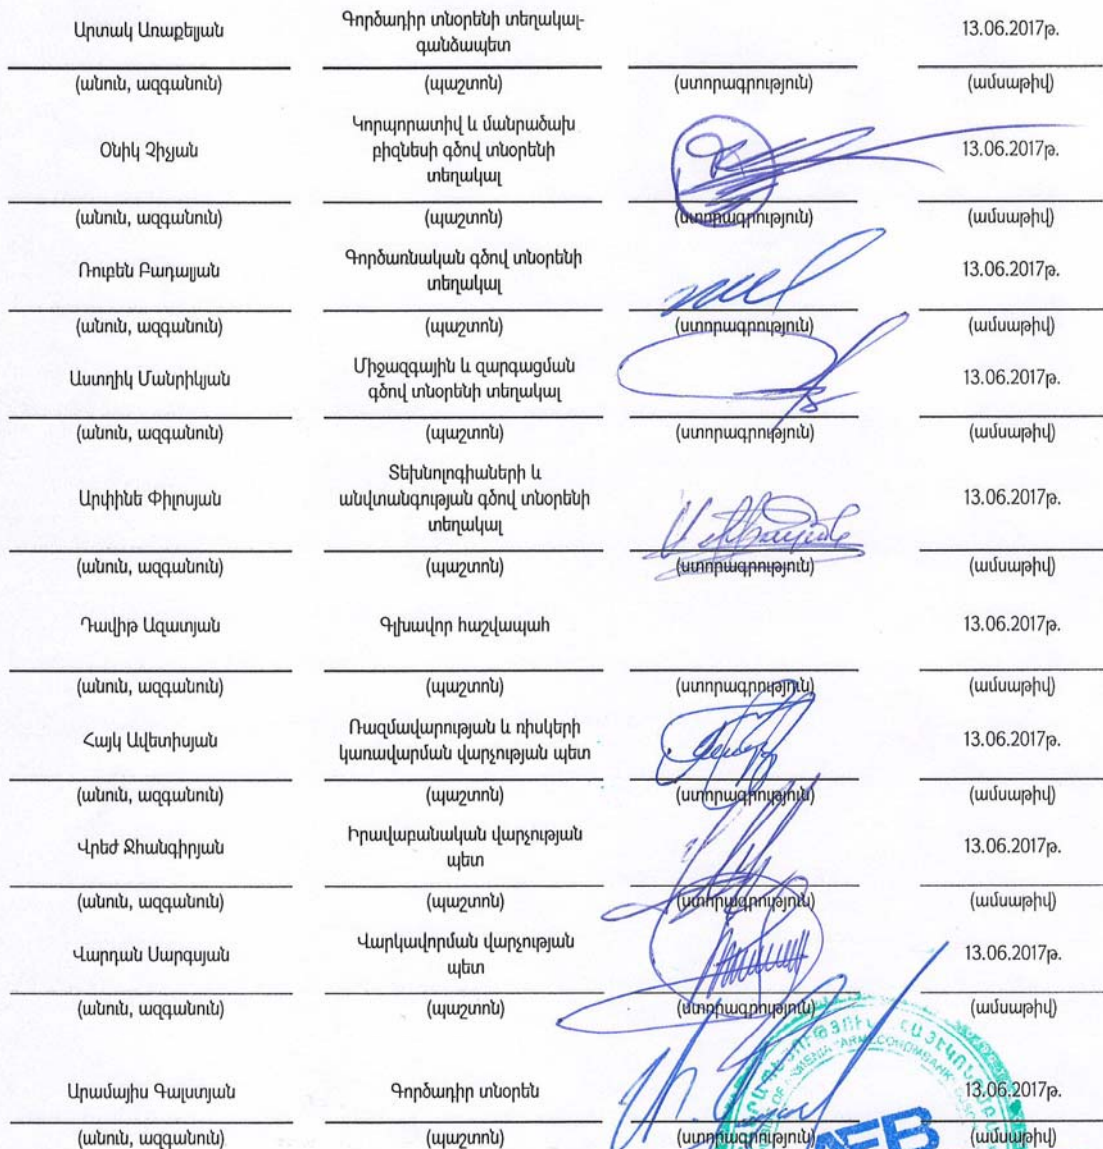 Արտակ Առաքելյան
Գործադիր տնօրենի տեղակալ-
գանձապետ
13.06.2017թ.
(անուն, ազգանուն) (պաշտոն) (ստորագրություն) (ամսաթիվ)
Օնիկ Չիչյան
Կորպորատիվ և մանրածախ
բիզնեսի գծով տնօրենի
տեղակալ
13.06.2017թ.
(անուն, ազգանուն) (պաշտոն) (ստորագրություն) (ամսաթիվ)
Ռուբեն Բադալյան
Գործառնական գծով տնօրենի
տեղակալ
13.06.2017թ.
(անուն, ազգանուն) (պաշտոն) (ստորագրություն) (ամսաթիվ)
Աստղիկ Մանրիկյան
Միջազգային և զարգացման
գծով տնօրենի տեղակալ
13.06.2017թ.
(անուն, ազգանուն) (պաշտոն) (ստորագրություն) (ամսաթիվ)
Արփինե Փիլոսյան
Տեխնոլոգիաների և
անվտանգության գծով տնօրենի
տեղակալ
13.06.2017թ.
(անուն, ազգանուն) (պաշտոն) (ստորագրություն) (ամսաթիվ)
Դավիթ Ազատյան
Գլխավոր հաշվապահ
13.06.2017թ.
(անուն, ազգանուն) (պաշտոն) (ստորագրություն) (ամսաթիվ)
Հայկ Ավետիսյան
Ռազմավարության և ռիսկերի
կառավարման վարչության պետ
13.06.2017թ.
(անուն, ազգանուն) (պաշտոն) (ստորագրություն) (ամսաթիվ)
Վրեժ Ջհանգիրյան
Իրավաբանական վարչության
պետ
13.06.2017թ.
(անուն, ազգանուն) (պաշտոն) (ստորագրություն) (ամսաթիվ)
Վարդան Սարգսյան
Վարկավորման վարչության
պետ
13.06.2017թ.
(անուն, ազգանուն) (պաշտոն) (ստորագրություն) (ամսաթիվ)
Արամայիս Գալստյան
Գործադիր տնօրեն
13.06.2017թ.
(անուն, ազգանուն) (պաշտոն) (ստորագրություն) (ամսաթիվ)
AEB